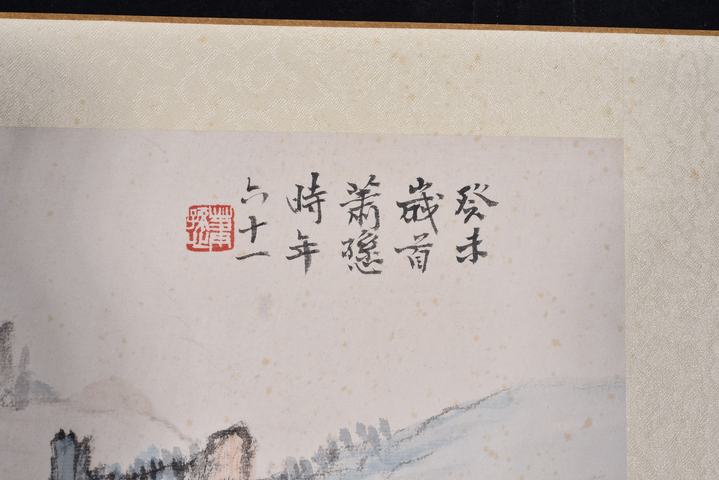 癸未
歲首
蕭愻
時年
六十一
蕭愻